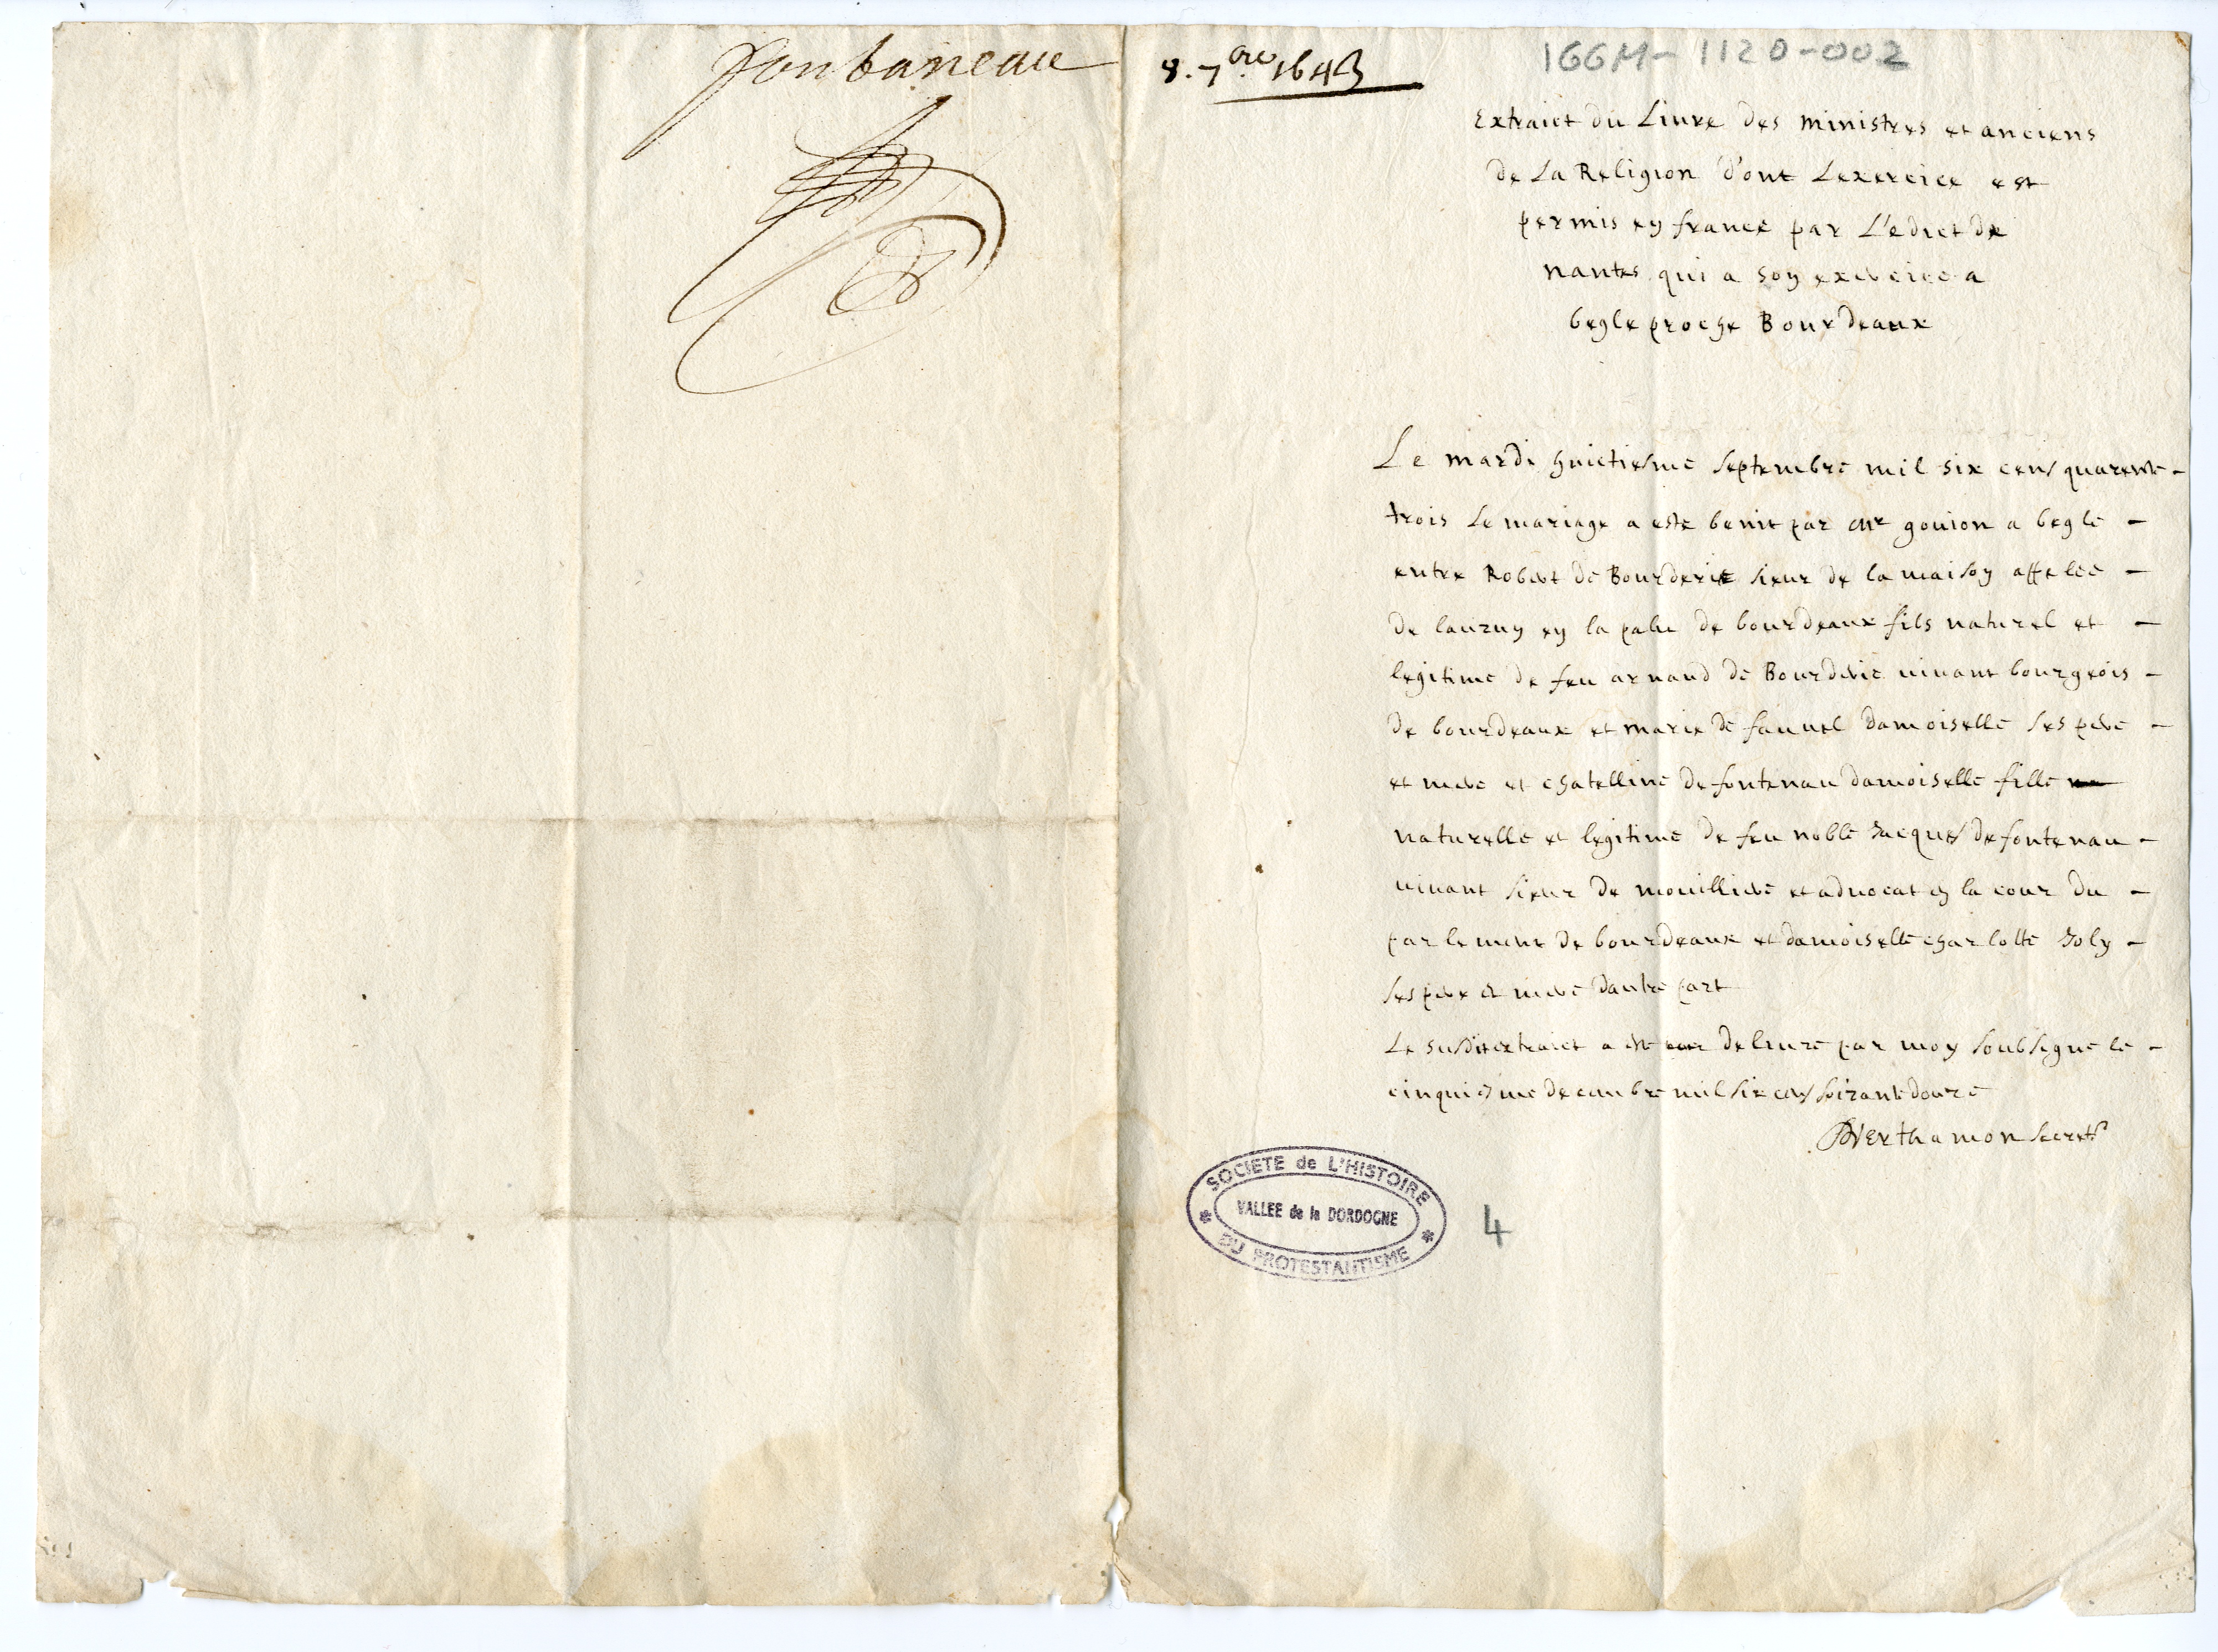 fonbaneau
8. 7bre 1643
166M-1120-002
Extraict du Liure des ministres et anciens
de La Religion d'ont Lexercice est
permis en france par L'edict de
nantes qui a son exercice a
begle proche Bourdeaux
Le mardi huictiesme septembre mil six cens quarente
trois Le mariage a este benit par Mr gouion a begle
entre Robert de Bourderie sieur de la maison appelee
de en la palu de bourdeaux fils naturel et
legitime de feu arnaud de Bourderie uiuant bourgeois
de bourdeaux et marie de damoiselle ses pere
et mere et chatelline de fontenau damoiselle fille
naturelle et legitime de feu noble Jacques de fontenau
uiuant sieur de mouilliere et aduocat en la cour du
parlement de bourdeaux et damoiselle charlotte Joly
ses pere et mere dautre part
Le susdit extraict a este deliure par moy soubsigne le
cinquiesme decembre mil six cens soixante douze
Berthamon secret.
SOCIETE de L'HISTOIRE
VALLEE de la DORDOGNE
DU PROTESTANTISME
4